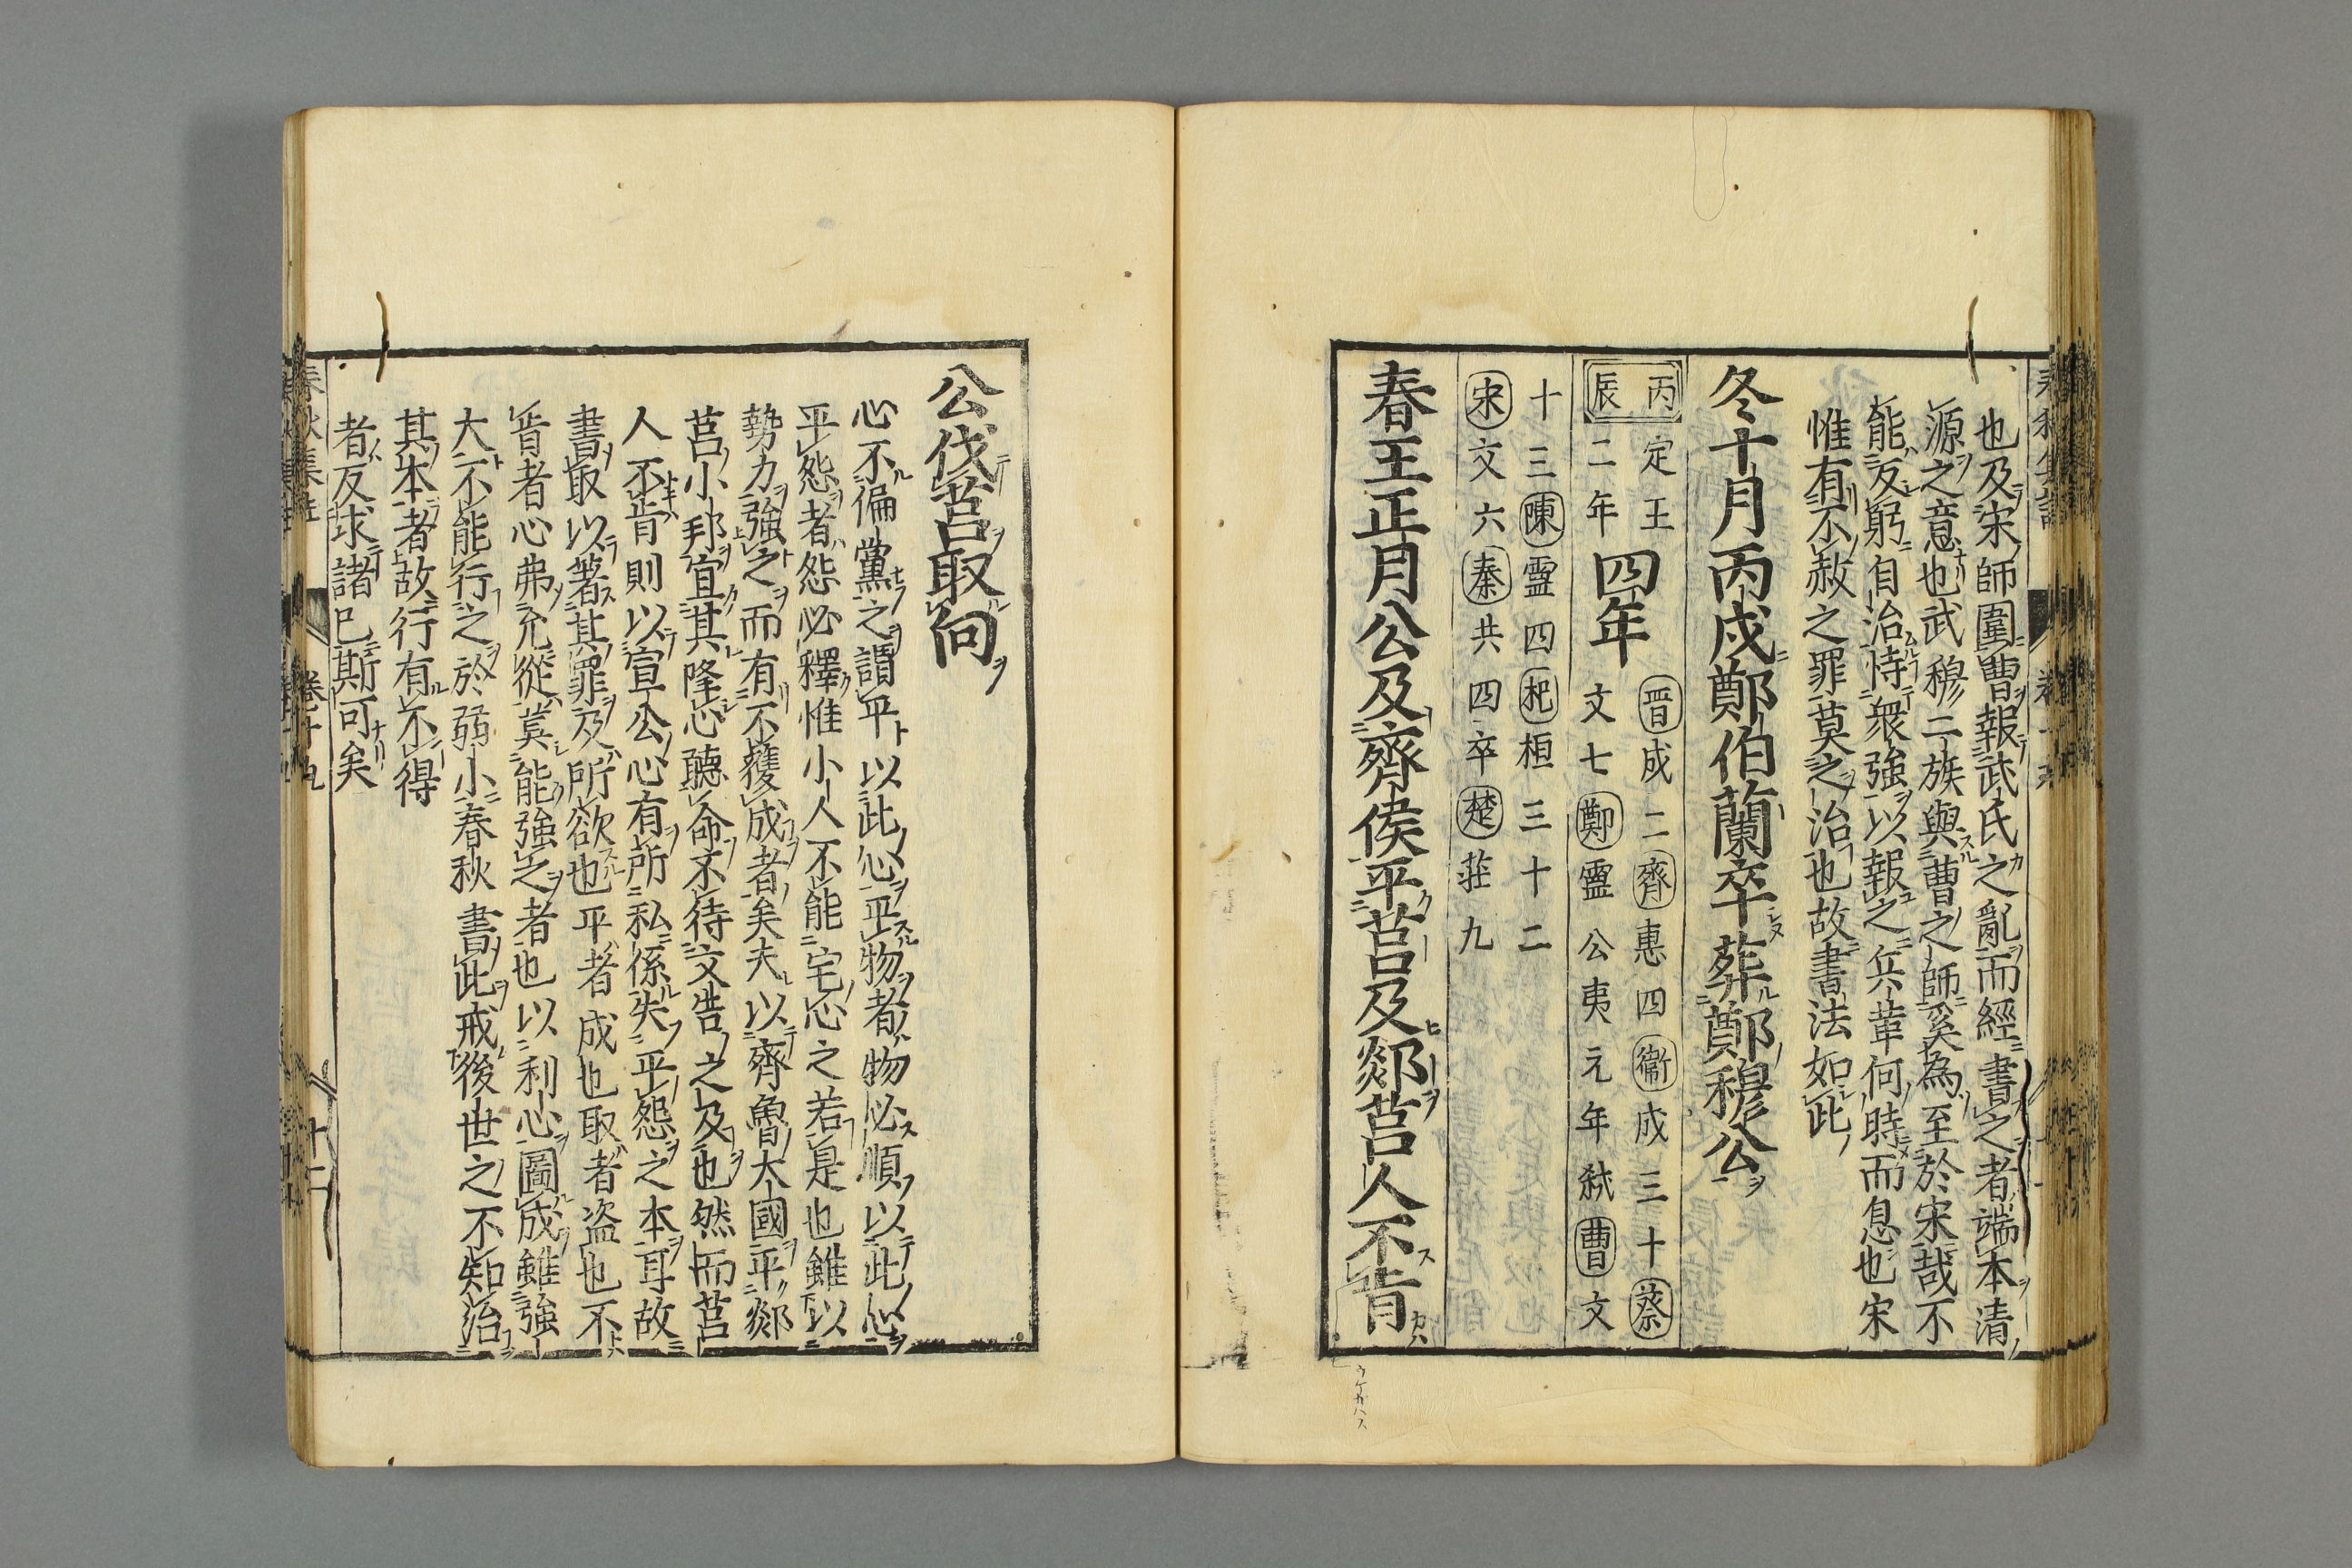 也及宋師圍曹報武氏之亂而經書之者端本清
源之意也武穆二族與曹之師奚為至於宋哉不
能反躬自治恃衆強以報之兵革何時而息也宋
惟有不赦之罪莫之治也故書法如此
冬十月丙戌鄭伯蘭卒葬鄭穆公
丙辰 定王二年 四年 晋成二齊惠四衞成三十蔡文七鄭靈公夷元年弑曹文
十三陳靈四杞桓三十二宋文六秦共四卒楚莊九
春王正月公及齊侯平莒及郯莒人不肯
公伐莒取向
心不偏黨之謂平以此心平物者物必順以此心
平怨者怨必釋惟小人不能宅心之若是也雖以
勢力強之而有不獲成者矣夫以齊魯大國平郯
莒小邦宜其降心聽命不待文告之及也然而莒
人不肯則以宣公心有所私係失平怨之本耳故
書取以著其罪及所欲也平者成也取者盜也不
肯者心弗允從莫能強之者也以利心圖成雖強
大不能行之於弱小春秋書此戒後世之不知治
其本者故行有不得
者反求諸已斯可矣
春秋集註 卷十九 十二